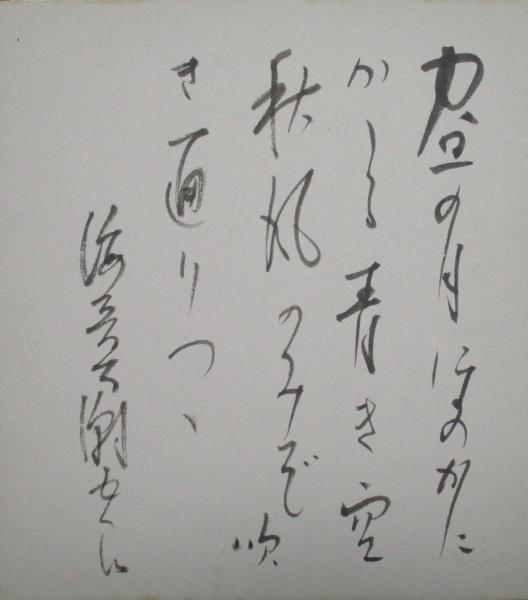 昼の月ほのかに
かゝる青き空
秋風のみぞ吹
き通りつゝ
海音寺潮五郎